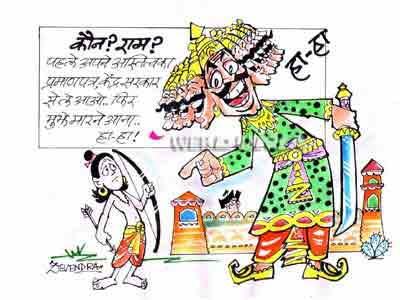 कौन? राम?
पहले अपने अस्तित्व का
प्रमाणपत्र केंद्र सरकार
से ले आओ.. फिर
मुझे मारने आना..
हा-हा!
हा-हा
DEVENDRA